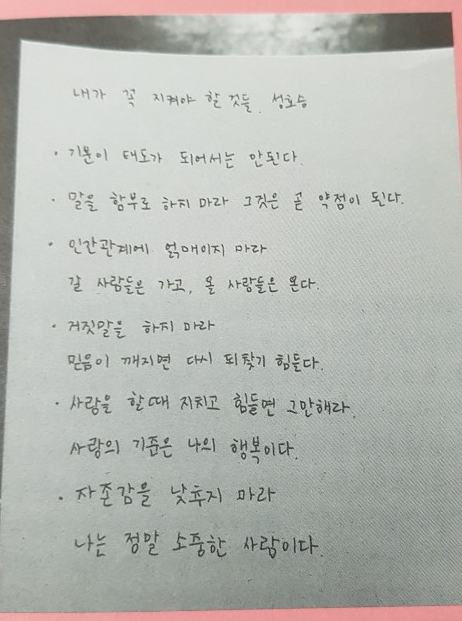 내가 꼭 지켜야 할 것들. 성효승
· 기분이 태도가 되어서는 안된다.
· 말을 함부로 하지 마라 그것은 곧 약점이 된다.
· 인간관계에 얽매이지 마라
갈 사람들은 가고, 올 사람들은 온다.
· 거짓말을 하지 마라
믿음이 깨지면 다시 되찾기 힘들다.
· 사랑을 할때 지치고 힘들면 그만해라.
사랑의 기준은 나의 행복이다.
· 자존감을 낮추지 마라
나는 정말 소중한 사람이다.